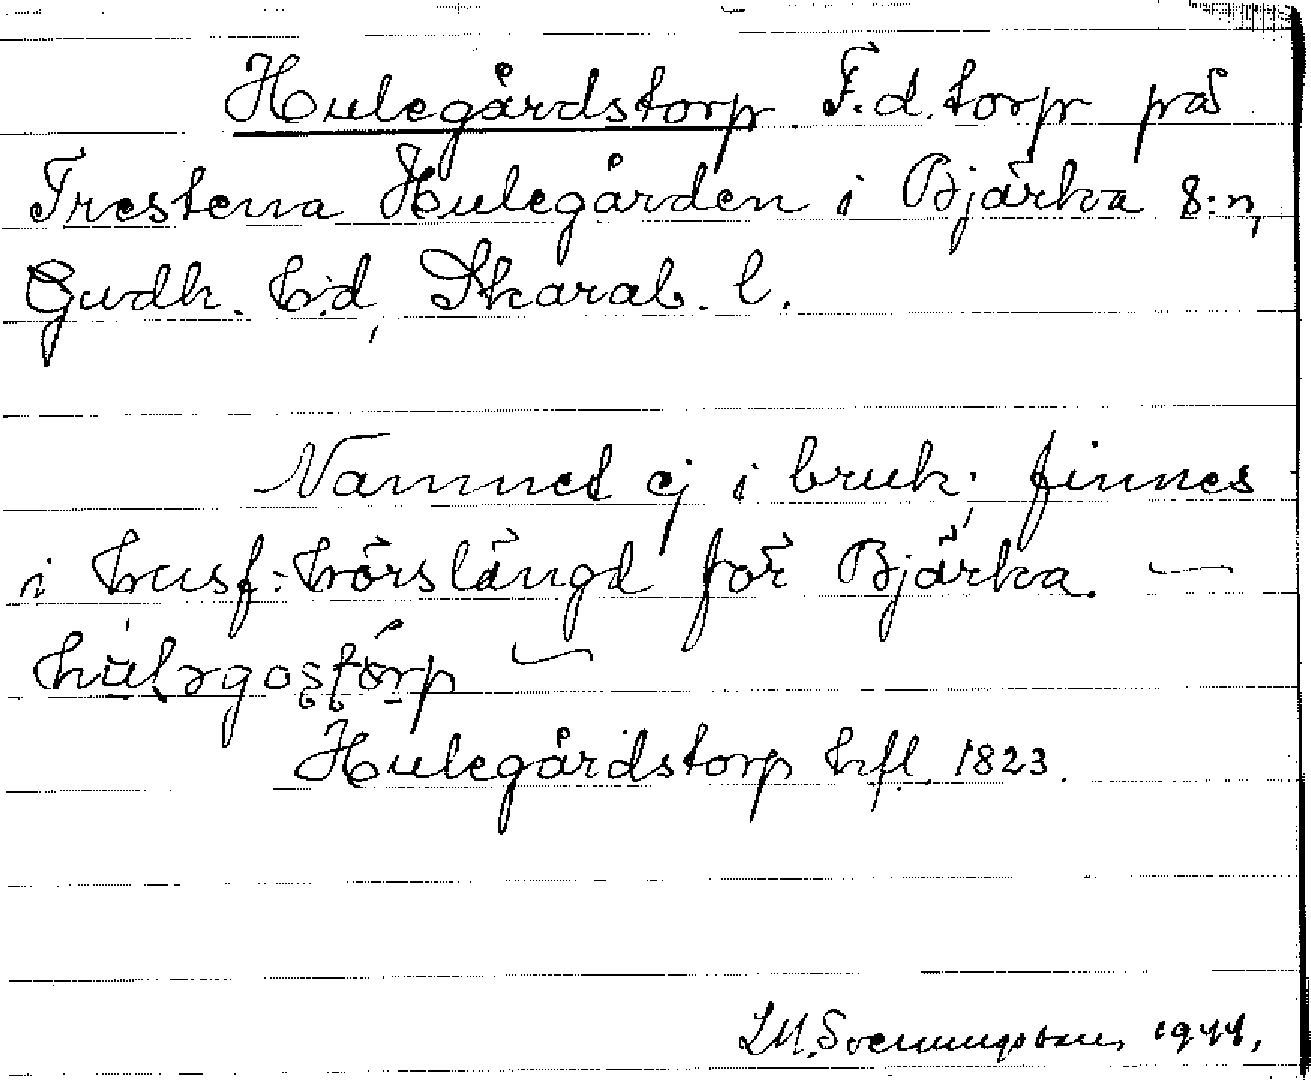 Hulegårdstorp F.d. torp på
Trestena Hulegården i Bjärka s:n,
Gudh. h:d, Skarab. l.
Namnet ej i bruk; finnes
i husf:hörslängd för Bjärka. —
—
Hulegårdstorp hfl. 1823.
L.M. Svenungsson, 1944.